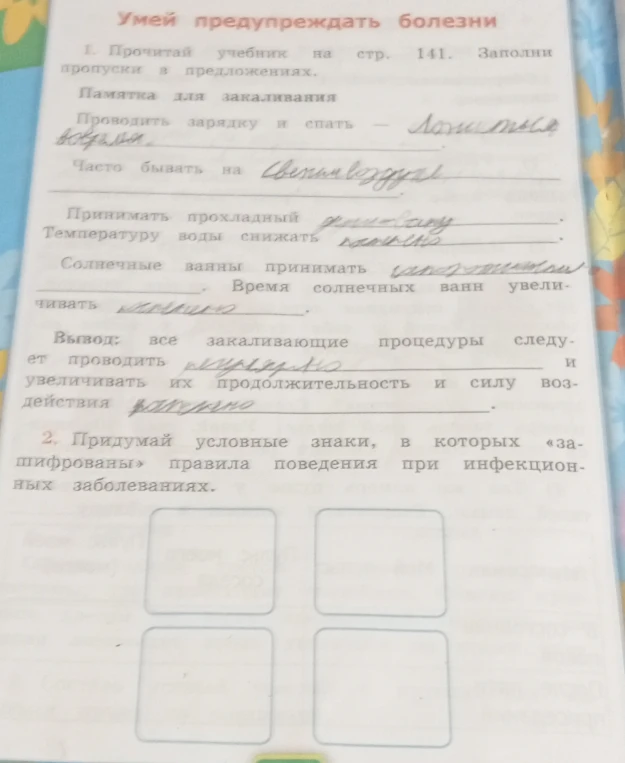 Умей предупреждать болезни
1. Прочитай учебник на стр. 141. Заполни
пропуски в предложениях.
Памятка для закаливания
Проводить зарядку и спать — Ложиться
вовремя.
Часто бывать на Свежем воздухе
.
Принимать прохладный .
Температуру воды снижать .
Солнечные ванны принимать
. Время солнечных ванн увели-
чивать .
Вывод: все закаливающие процедуры следу-
ет проводить и
увеличивать их продолжительность и силу воз-
действия .
2. Придумай условные знаки, в которых «за-
шифрованы» правила поведения при инфекцион-
ных заболеваниях.